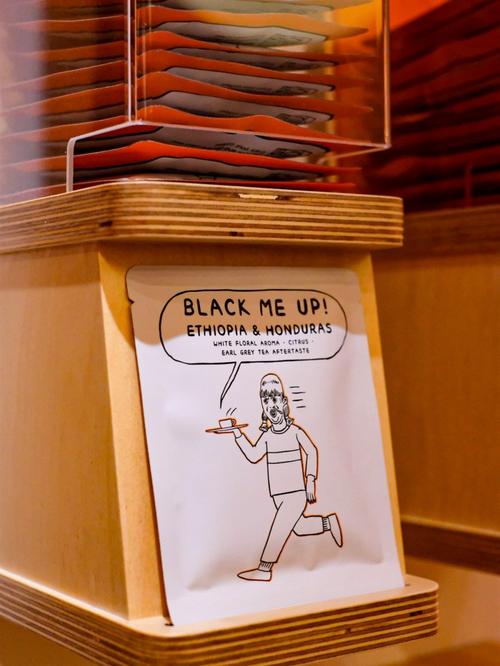 BLACK ME UP!
ETHIOPIA & HONDURAS
WHITE FLORAL AROMA · CITRUS ·
EARL GREY TEA AFTERTASTE